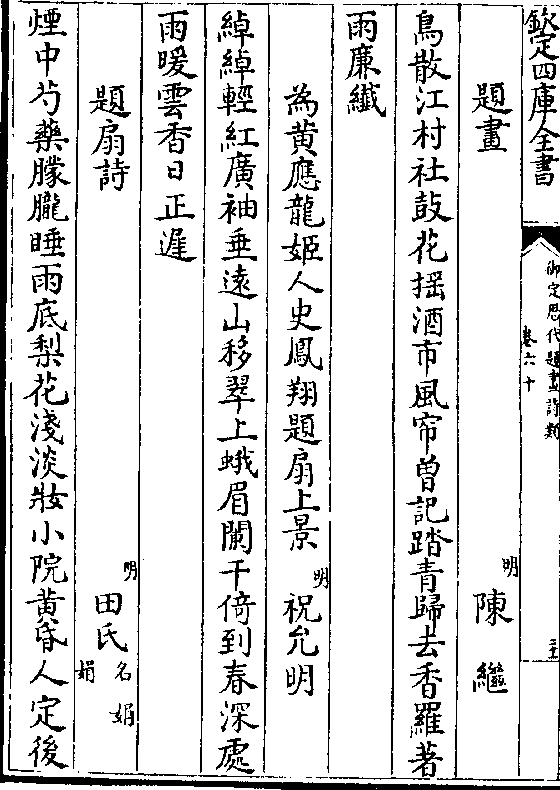 欽定四庫全書
御定歷代題畫詩類
卷六十
題畫
明
陳繼
鳥散江村社鼓花揺酒市風帘曽記踏青歸去香羅著
雨廉纖
為黄應龍姬人史鳳翔題扇上景
明
祝允明
綽綽輕紅廣袖垂逺山移翠上蛾眉闌干倚到春深處
雨暖雲香日正遲
題扇詩
明
田氏
名娟
娟
煙中芍藥朦朧睡雨底梨花淺淡妝小院黄昏人定後